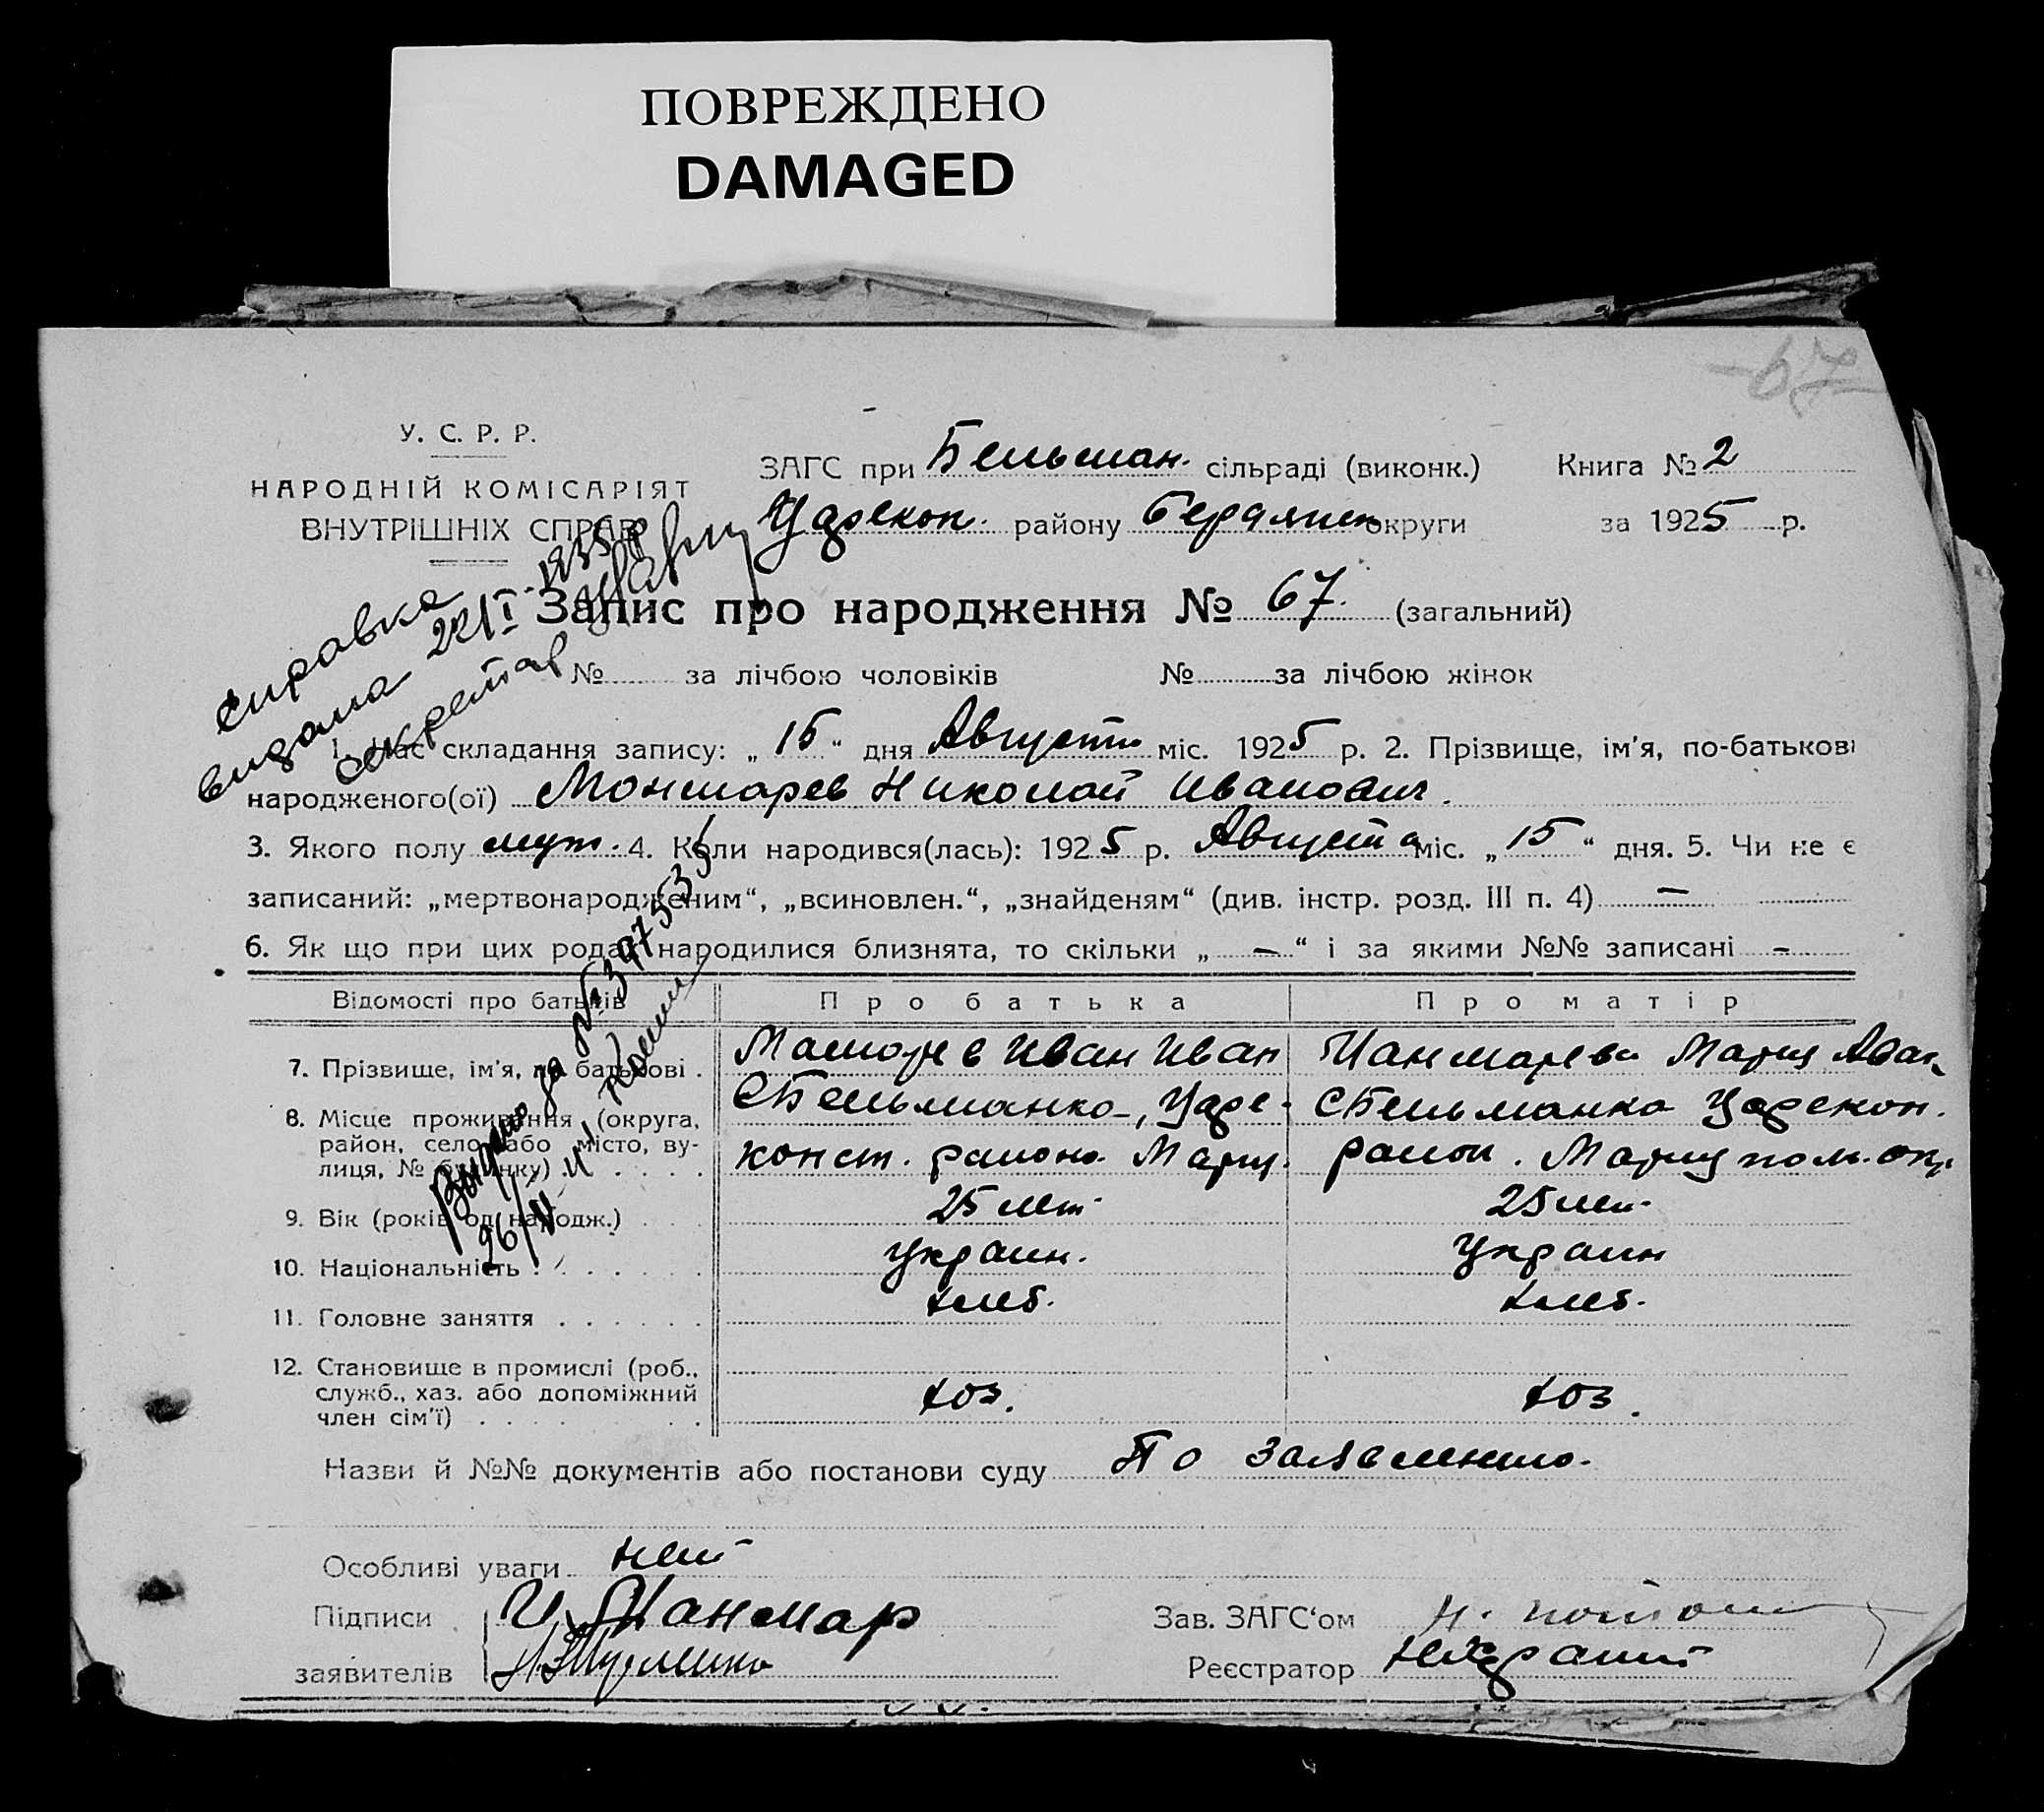 ПОВРЕЖДЕНО
DAMAGED
67
У. С. Р. Р.
НАРОДНІЙ КОМІСАРІЯТ
ВНУТРІШНІХ СПРАВ
ЗАГС при Бельман. сільраді (виконк.) Книга № 2
Царекон. району Бердянск округи за 1925 р.
Справка
видана 22/I 1935 р
секретар
Запис про народження № 67. (загальний)
№ за лічбою чоловіків № за лічбою жінок
1. Час складання запису: „ 15 “ дня Август міс. 1925 р. 2. Прізвище, ім'я, по-батькові
народженого(ої) Монмарев Николай Иванович.
3. Якого полу муж. 4. Коли народився(лась): 1925 р. Августа міс. „ 15 “ дня. 5. Чи не є
записаний: „мертвонародженим“, „всиновлен.“, „знайденям“ (див. інстр. розд. III п. 4) —
6. Як що при цих родах народилися близнята, то скільки „ — “ і за якими №№ записані -
Видано за № 397535
26/VI
Відомості про батьків Про батька Про матір
7. Прізвище, ім'я, по батькові . Иван Иван Мария
8. Місце проживання (округа, район, село або місто, ву- лиця, № будинку) . . . . . С Бельманка, Царе- конст. района Мариу. С Бельманка Царекон. район. Мариупол. окр.
9. Вік (років од народж.) . . . 25 лет 25 лет
10. Національність . . . . . . Украин. Украин
11. Головне заняття . . . . . . хлеб. хлеб.
12. Становище в промислі (роб., служб., хаз. або допоміжний член сім'ї) . . . . хоз. хоз.
Назви й №№ документів або постанови суду По заявлению.
Особливі уваги нет
Підписи
заявителів
Зав. ЗАГС‘ом
Реєстратор